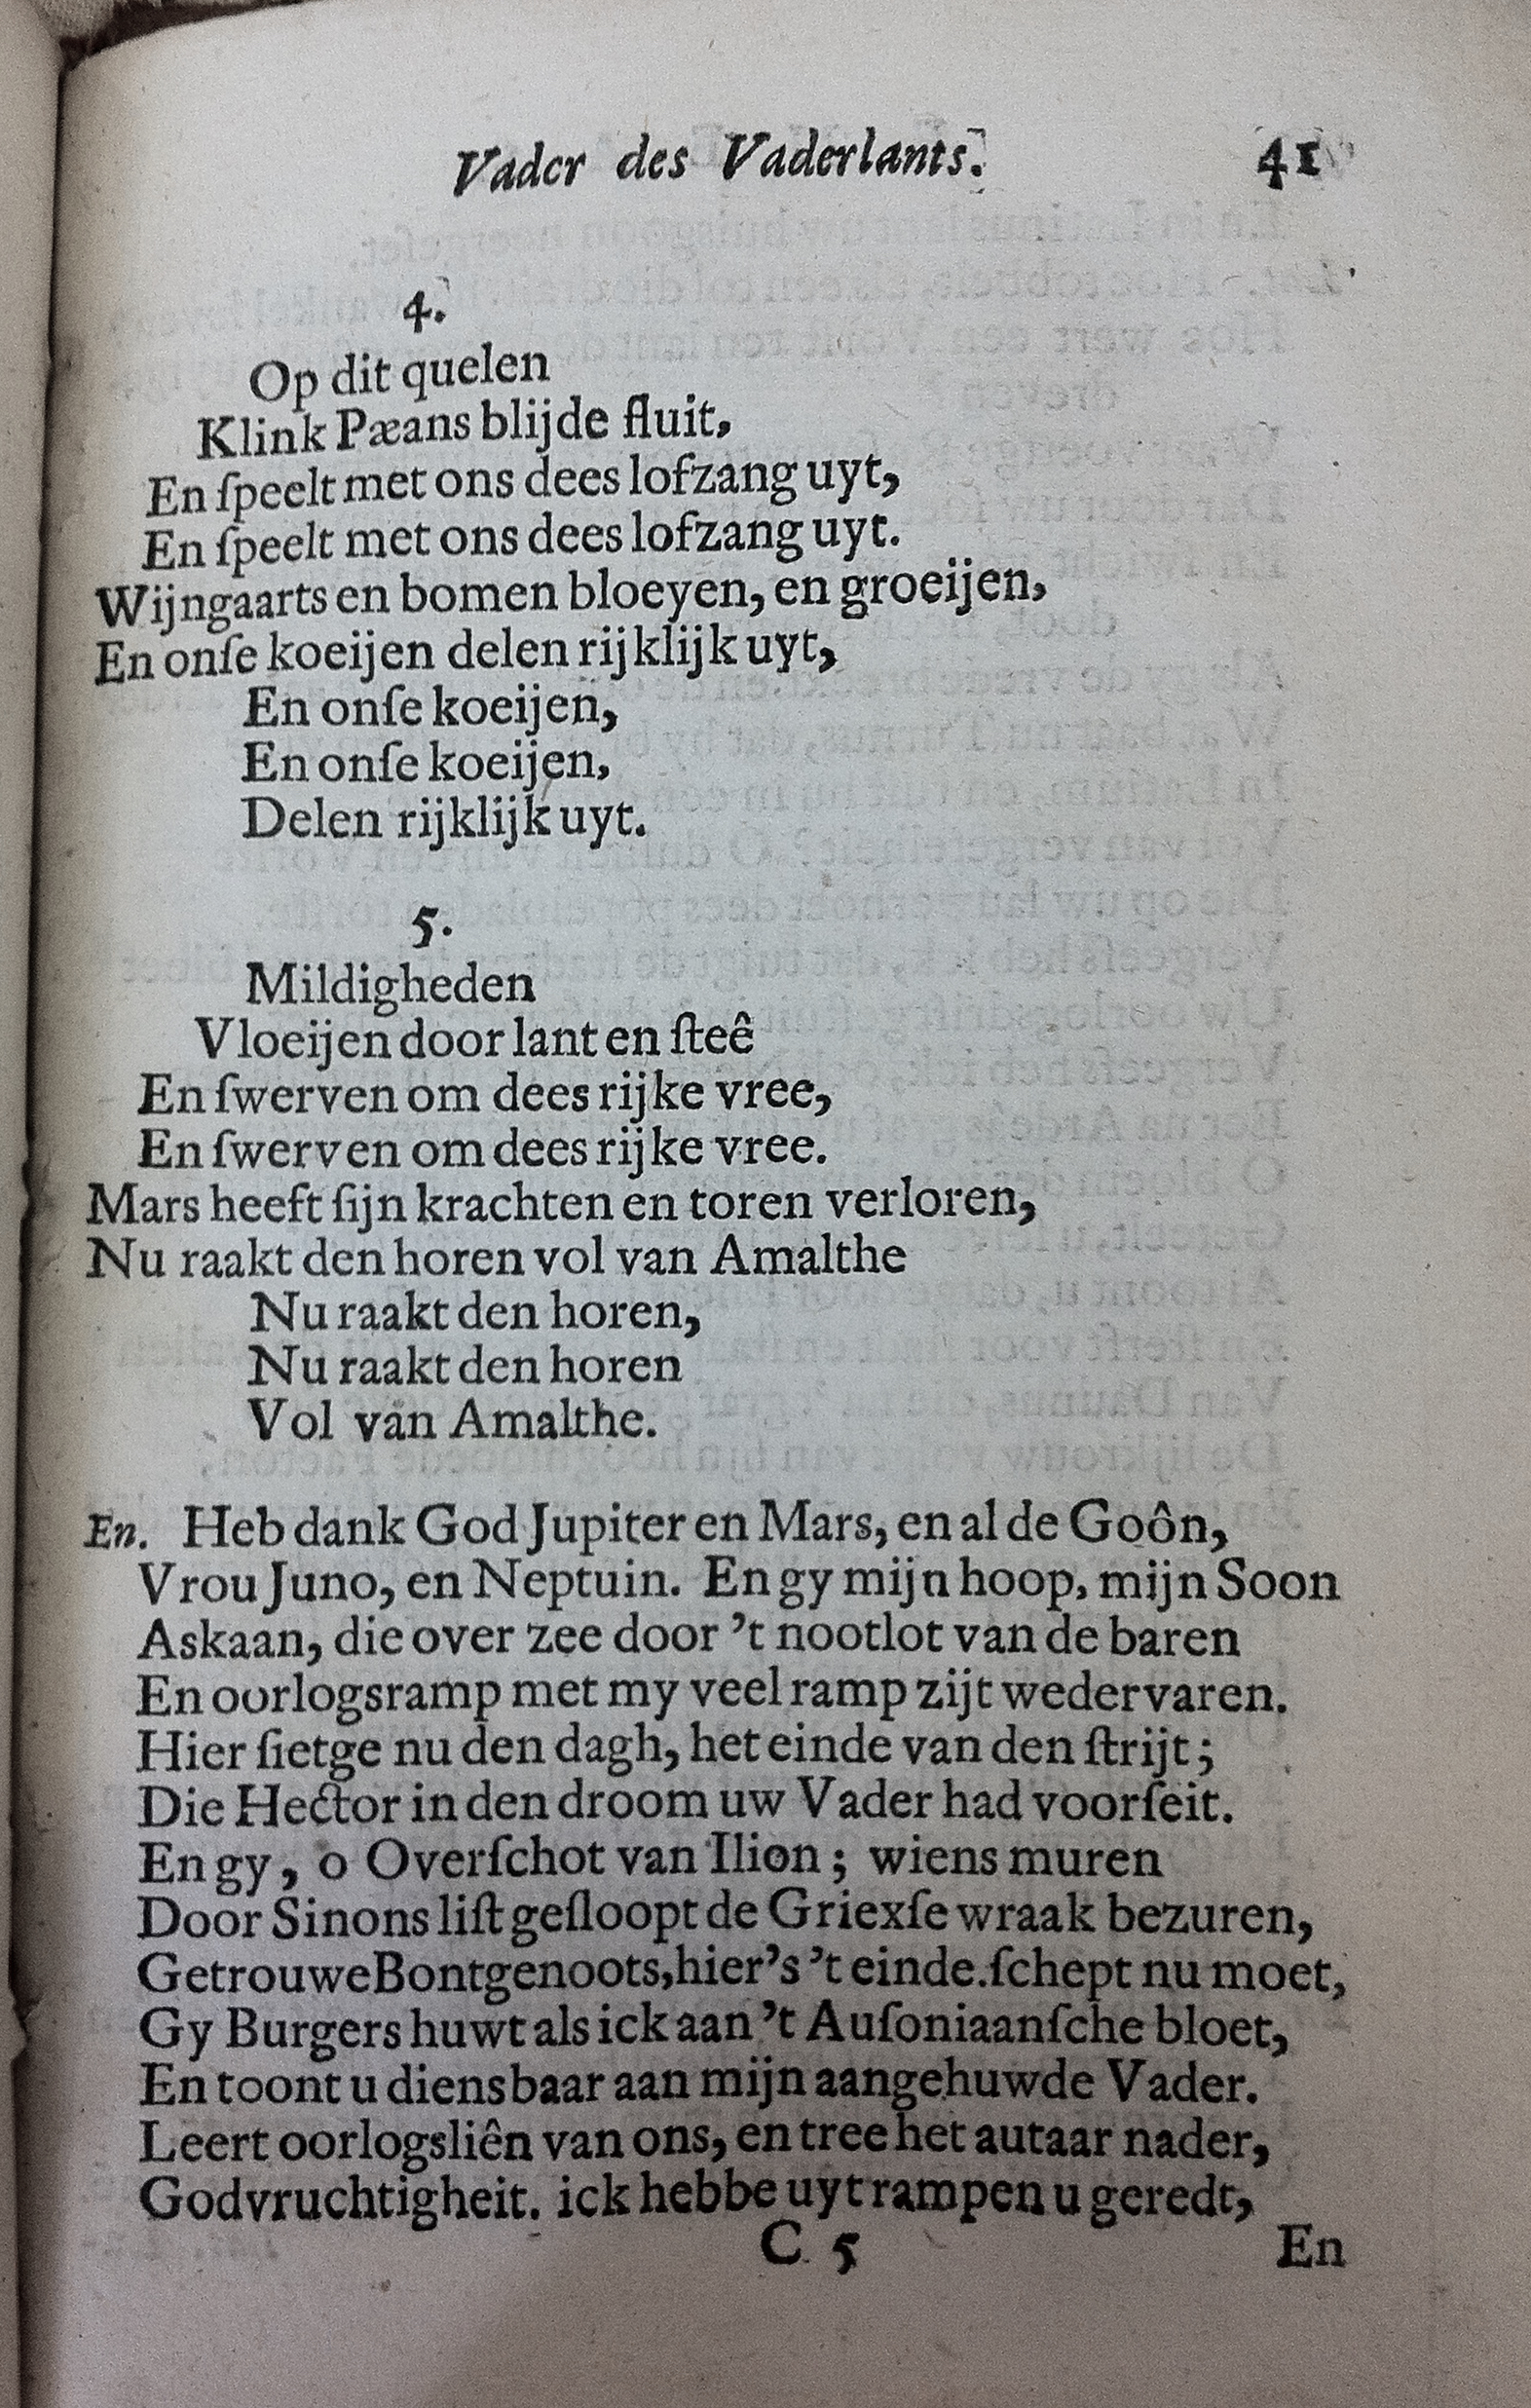 Vader des Vaderlants. 41
4.
Op dit quelen
Klink Pæans blijde fluit,
En ſpeelt met ons dees lofzang uyt,
En ſpeelt met ons dees lofzang uyt.
Wijngaarts en bomen bloeyen, en groeijen,
En onſe koeijen delen rijklijk uyt,
En onſe koeijen,
En onſe koeijen,
Delen rijklijk uyt.
5.
Mildigheden
Vloeijen door lant en ſteê
En ſwerven om dees rijke vree,
En ſwerven om dees rijke vree.
Mars heeft ſijn krachten en toren verloren,
Nu raakt den horen vol van Amalthe
Nu raakt den horen,
Nu raakt den horen
Vol van Amalthe.
En. Heb dank God Jupiter en Mars, en al de Goôn,
Vrou Juno, en Neptuin. En gy mijn hoop, mijn Soon
Askaan, die over zee door 't nootlot van de baren
En oorlogsramp met my veel ramp zijt wedervaren.
Hier ſietge nu den dagh, het einde van den ſtrijt;
Die Hector in den droom uw Vader had voorſeit.
En gy, o Overſchot van Ilion; wiens muren
Door Sinons liſt geſloopt de Griexſe wraak bezuren,
Getrouwe Bontgenoots, hier's 't einde. ſchept nu moet,
Gy Burgers huwt als ick aan 't Auſoniaanſche bloet,
En toont u diensbaar aan mijn aangehuwde Vader.
Leert oorlogsliên van ons, en tree het autaar nader,
Godvruchtigheit. ick hebbe uyt rampen u geredt,
C 5 En